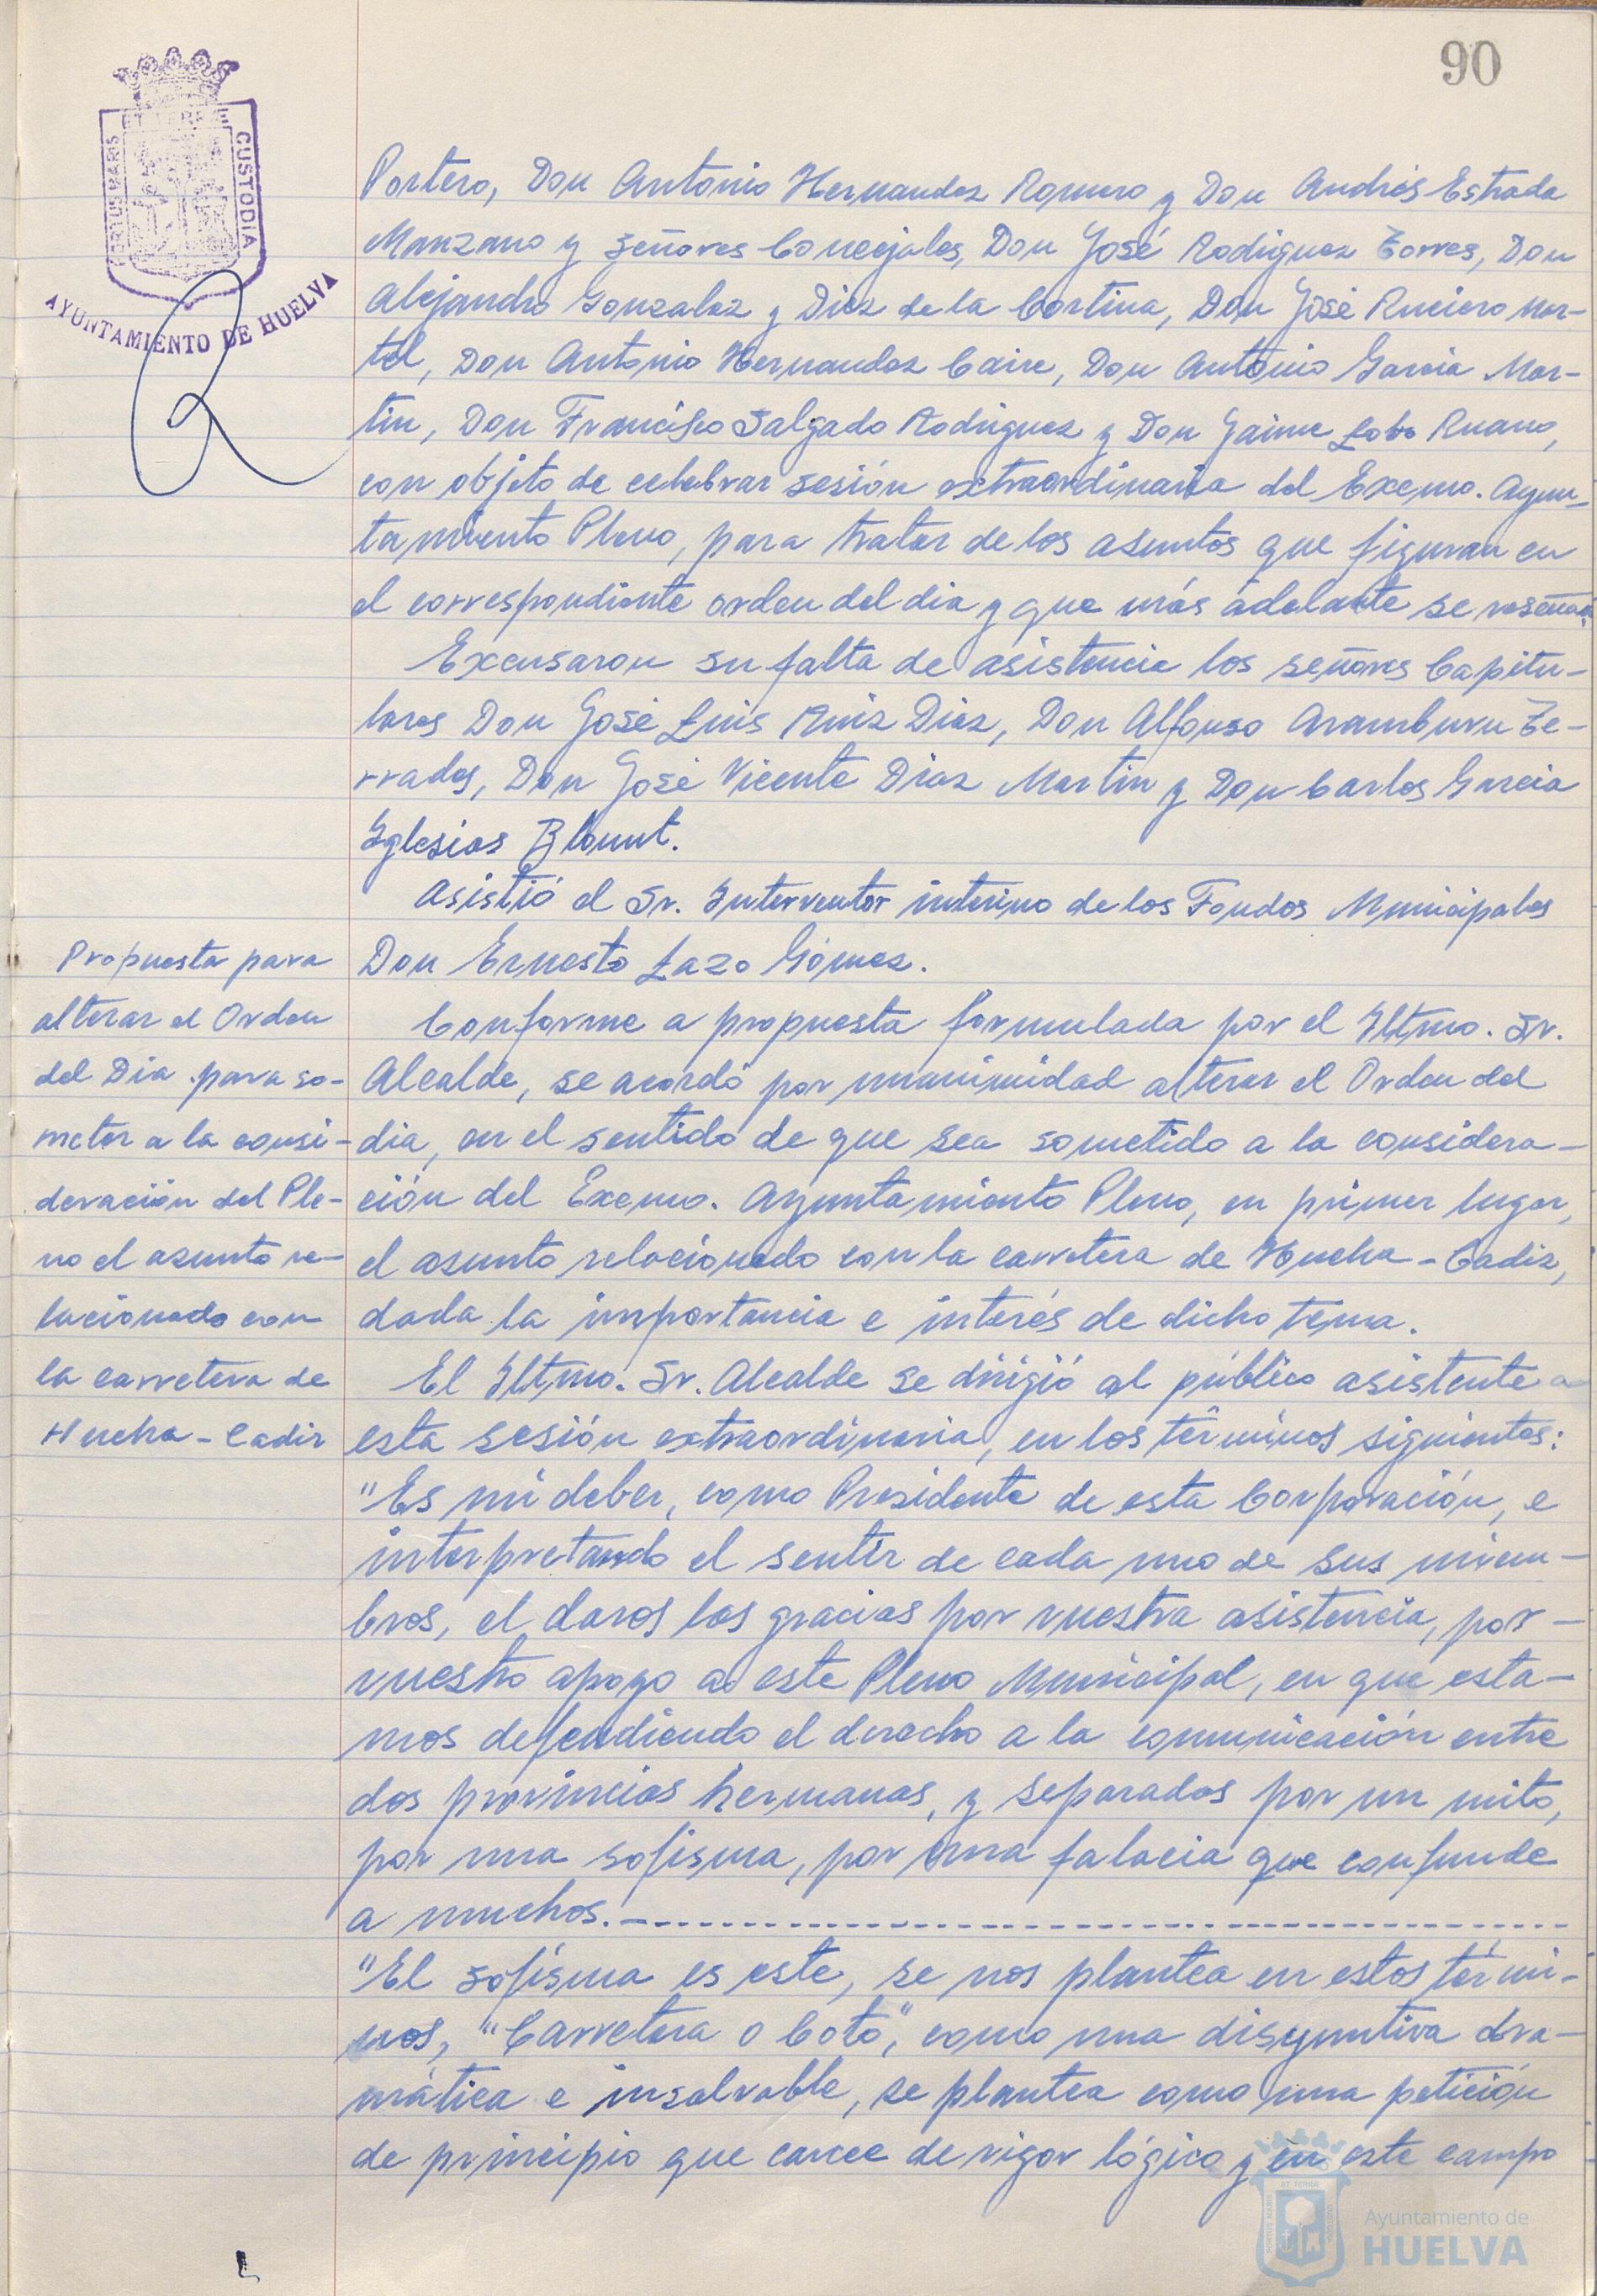 90
PORTUS MARIS ET TERRAE CUSTODIA
AYUNTAMIENTO DE HUELVA
Portero, Don Antonio Hernandez Romero y Don Andrés Estrada
Manzano y Señores Concejales, Don José Rodriguez Torres, Don
Alejandro Gonzalez y Diez de la Cortina, Don José Ruciero Mar-
tel, Don Antonio Hernandez Caire, Don Antonio Garcia Mar-
tin, Don Francisco Salgado Rodriguez y Don Jaime Lobo Ruano,
con objeto de celebrar sesión extraordinaria del Excmo. Ayun-
tamiento Pleno, para tratar de los asuntos que figuran en
el correspondiente orden del dia y que más adelante se reseñan.
Excusaron su falta de asistencia los señores Capitu-
lares Don José Luis Ruiz Diaz, Don Alfonso Aramburu Te-
rrades, Don José Vicente Diaz Martin y Don Carlos Garcia
Iglesias Blount.
Asistió el Sr. Interventor interino de los Fondos Municipales
Don Ernesto Lazo Gómez.
Propuesta para
alterar el Orden
del Dia para so-
meter a la consi-
deración del Ple-
no el asunto re-
lacionado con
la carretera de
Huelva - Cadiz
Conforme a propuesta formulada por el Iltmo. Sr.
Alcalde, se acordó por unanimidad alterar el Orden del
dia, en el sentido de que sea sometido a la considera-
ción del Excmo. Ayuntamiento Pleno, en primer lugar,
el asunto relacionado con la carretera de Huelva - Cadiz,
dada la importancia e interés de dicho tema.
El Iltmo. Sr. Alcalde se dirigió al público asistente a
esta sesión extraordinaria, en los términos siguientes:
"Es mi deber, como Presidente de esta Corporación, e
interpretando el sentir de cada uno de sus miem-
bros, el daros las gracias por vuestra asistencia, por-
vuestro apoyo a este Pleno Municipal, en que esta-
mos defendiendo el derecho a la comunicación entre
dos provincias hermanas, y separadas por un mito,
por una sofisma, por una falacia que confunde
a muchos.-----
"El sofisma es este, se nos plantea en estos térmi-
nos, "Carretera o Coto", como una disyuntiva dra-
mática e insalvable, se plantea como una petición
de principio que carece de rigor lógico y en este campo
Ayuntamiento de
HUELVA